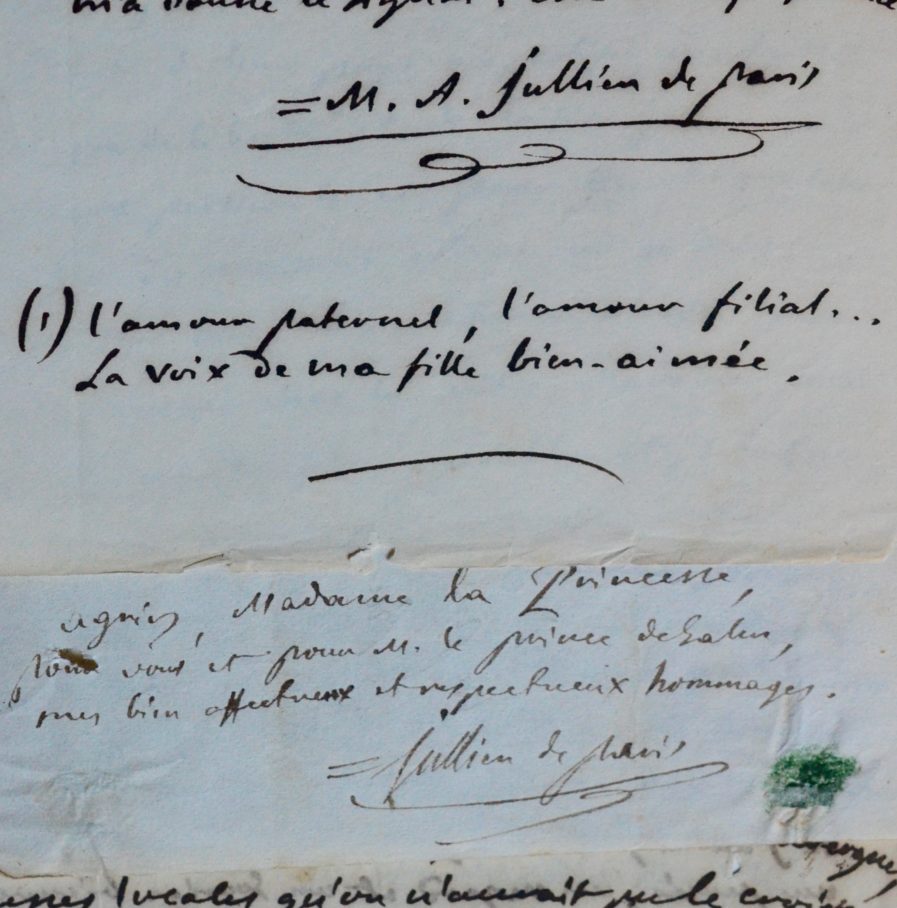 = M. A. Jullien de paris
(1) l'amour paternel, l'amour filial...
La voix de ma fille bien-aimée.
agréez, Madame la Princesse,
pour vous et pour M. le prince de Salm,
mes bien affectueux et respectueux hommages.
= Jullien de paris
locales qu'on n'aurait pu le croire